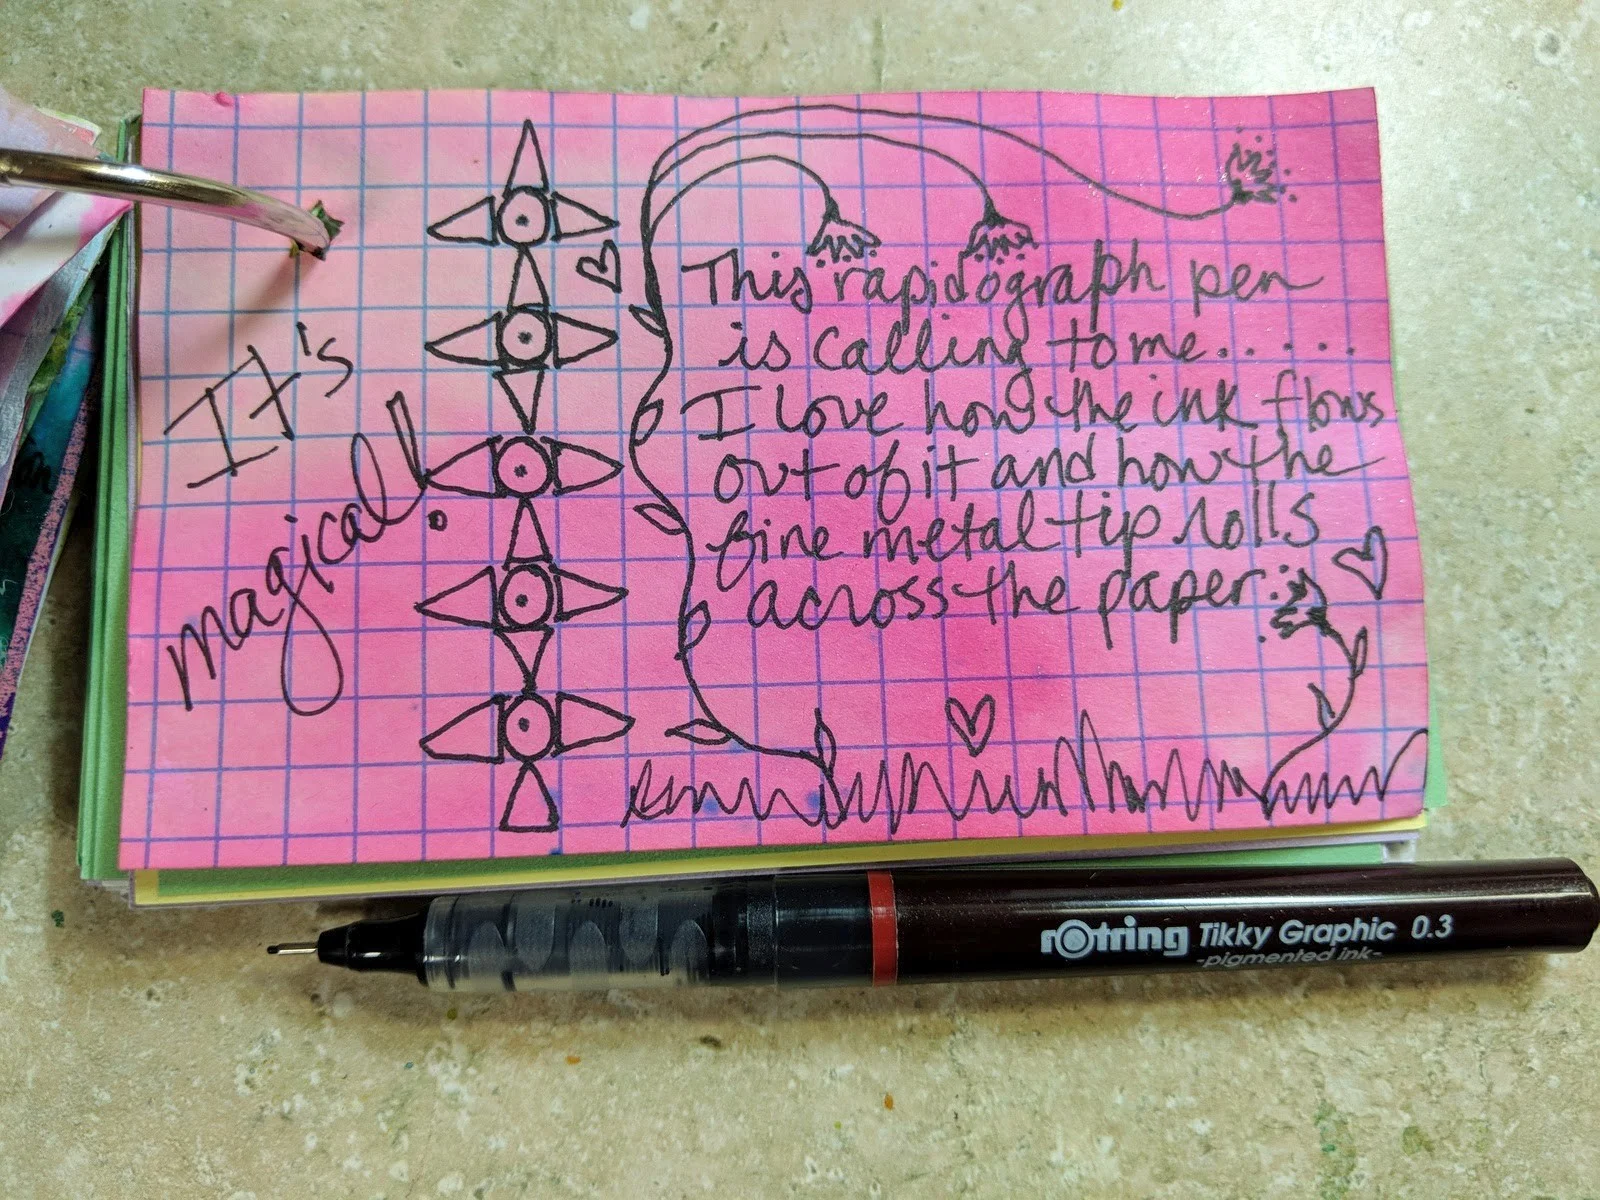 It's
magical!
This rapidograph pen
is calling to me......
I love how the ink flows
out of it and how the
fine metal tip rolls
across the paper.
rotring Tikky Graphic 0.3
-pigmented ink-